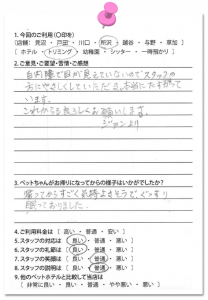 1. 今回のご利用(〇印を)
[店舗: 見沼 ・ 戸田 ・ 川口 ・ 所沢 ・ 越谷 ・ 与野 ・ 草加 ]
[ ホテル ・ トリミング ・ 幼稚園 ・ シッター ・ 一時預かり ]
2. ご意見・ご要望・苦情・ご感想
白内障で目が見えていないのでスタッフの
方にやさしくしていただき、本当にたすかって
います。
これからも宜しくお願いします。
ジョンより
3. ペットちゃんがお帰りになってからの様子はいかがでしたか?
帰ってからすごく気持よさそうで、ぐっすり
眠っておりました。
4. ご利用料金は [ 高い ・ 普通 ・ 安い ]
5. スタッフの対応は [ 良い ・ 普通 ・ 悪い ]
6. スタッフの笑顔は [ 良い ・ 普通 ・ 悪い ]
7. スタッフの説明は [ 良い ・ 普通 ・ 悪い ]
8. 他のペットホテルと比較して当店は
[ 非常に良い ・ 良い ・ 普通 ・ やや悪い ・ 悪い ]